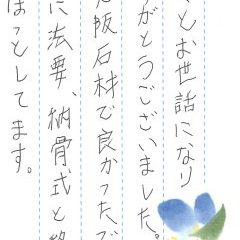 とお世話になり
がとうございました。
阪石材で良かったで
に法要、納骨式と
ほっとしてます。